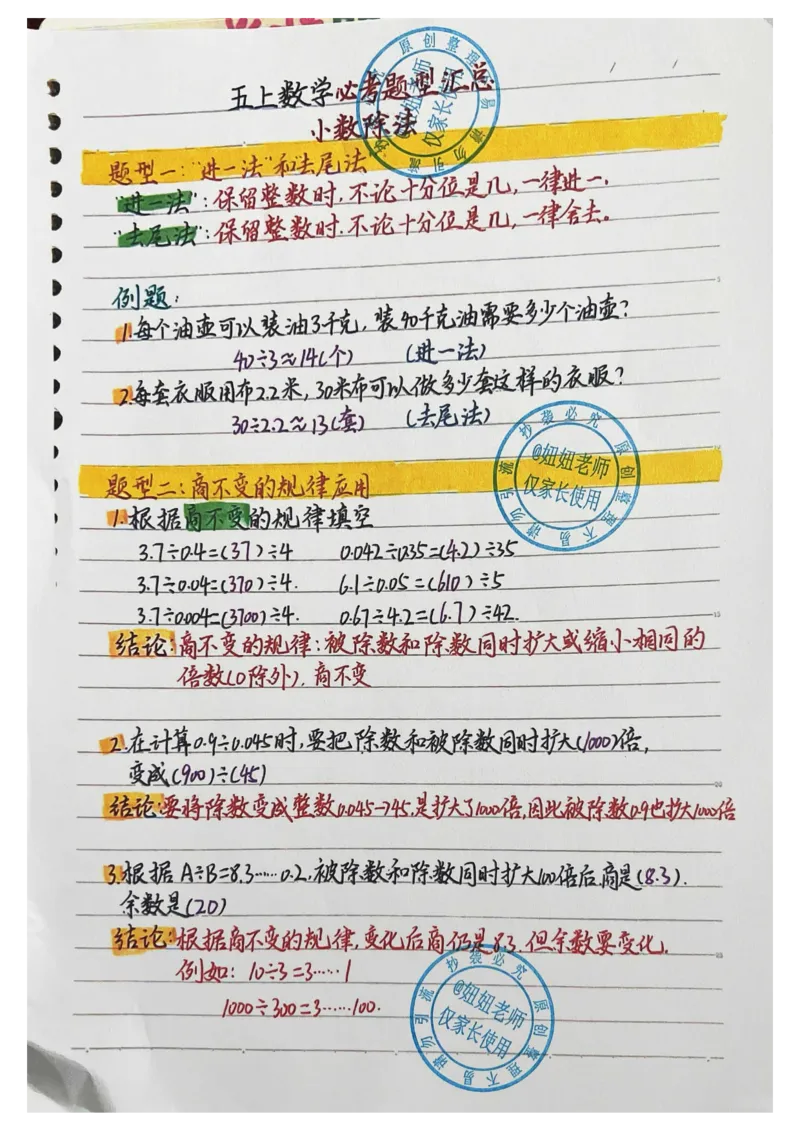 五上数学必考题型汇总
小数除法
题型一:"进一法"和去尾法
"进一法":保留整数时,不论十分位是几,一律进一.
"去尾法":保留整数时.不论十分位是几,一律舍去。
例题:
1.每个油壶可以装油3千克,装40千克油需要多少个油壶?
40÷3≈14(个) (进一法)
2.每套衣服用布2.2米,30米布可以做多少套这样的衣服?
30÷2.2≈13(套) (去尾法)
题型二:商不变的规律应用
1.根据商不变的规律填空
3.7÷0.4=(37)÷4 0.042÷0.35=(4.2)÷35
3.7÷0.04=(370)÷4. 6.1÷0.05=(610)÷5
3.7÷0.004=(3700)÷4. 0.67÷4.2=(6.7)÷42.
结论:商不变的规律:被除数和除数同时扩大或缩小相同的
倍数(0除外),商不变
2.在计算0.9÷0.045时,要把除数和被除数同时扩大(1000)倍,
变成(900)÷(45)
结论:要将除数变成整数0.045→45.是扩大了1000倍,因此被除数0.9也扩大1000倍
3.根据A÷B=8.3……0.2,被除数和除数同时扩大100倍后,商是(8.3).
余数是(20)
结论:根据商不变的规律,变化后商仍是8.3.但余数要变化.
例如:10÷3=3……1
1000÷300=3……100.
原创整理不易请勿引流抄
师
仅家长使
抄袭必究原创整理不易请勿引流
@妞妞老师
仅家长使用
抄袭必究原创整理不易请勿引流
@妞妞老师
仅家长使用